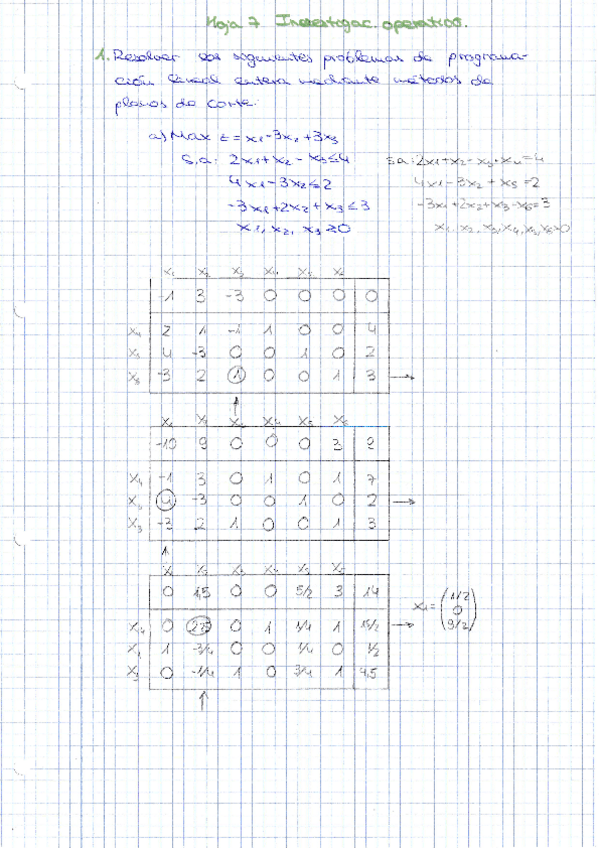 Hoja 7 Investigac. operativa.
1. Resolver los siguientes problemas de programa-
ción lineal entera mediante métodos de
planos de corte:
a) Max z = x1 - 3x2 + 3x3
s.a: 2x1 + x2 - x3 ≤ 4 s.a: 2x1 + x2 - x3 + x4 = 4
4x1 - 3x2 ≤ 2 4x1 - 3x2 + x5 = 2
-3x1 + 2x2 + x3 ≤ 3 -3x1 + 2x2 + x3 - x6 = 3
x1, x2, x3 ≥ 0 x1, x2, x3, x4, x5, x6 ≥ 0
x1 x2 x3 x4 x5 x6
-1 3 -3 0 0 0 0
x4 2 1 -1 1 0 0 4
x5 4 -3 0 0 1 0 2
x6 -3 2 1 0 0 1 3 →
↑
x1 x2 x3 x4 x5 x6
-10 9 0 0 0 3 2
x4 -1 3 0 1 0 1 7
x5 4 -3 0 0 1 0 2 →
x3 -3 2 1 0 0 1 3
↑
x1 x2 x3 x4 x5 x6
0 1,5 0 0 5/2 3 14
x4 0 0 1 1/4 1 15/2 →
x1 1 -3/4 0 0 1/4 0 1/2
x3 0 -1/4 1 0 3/4 1 4,5
↑
x1 = (1/2
0
9/2)